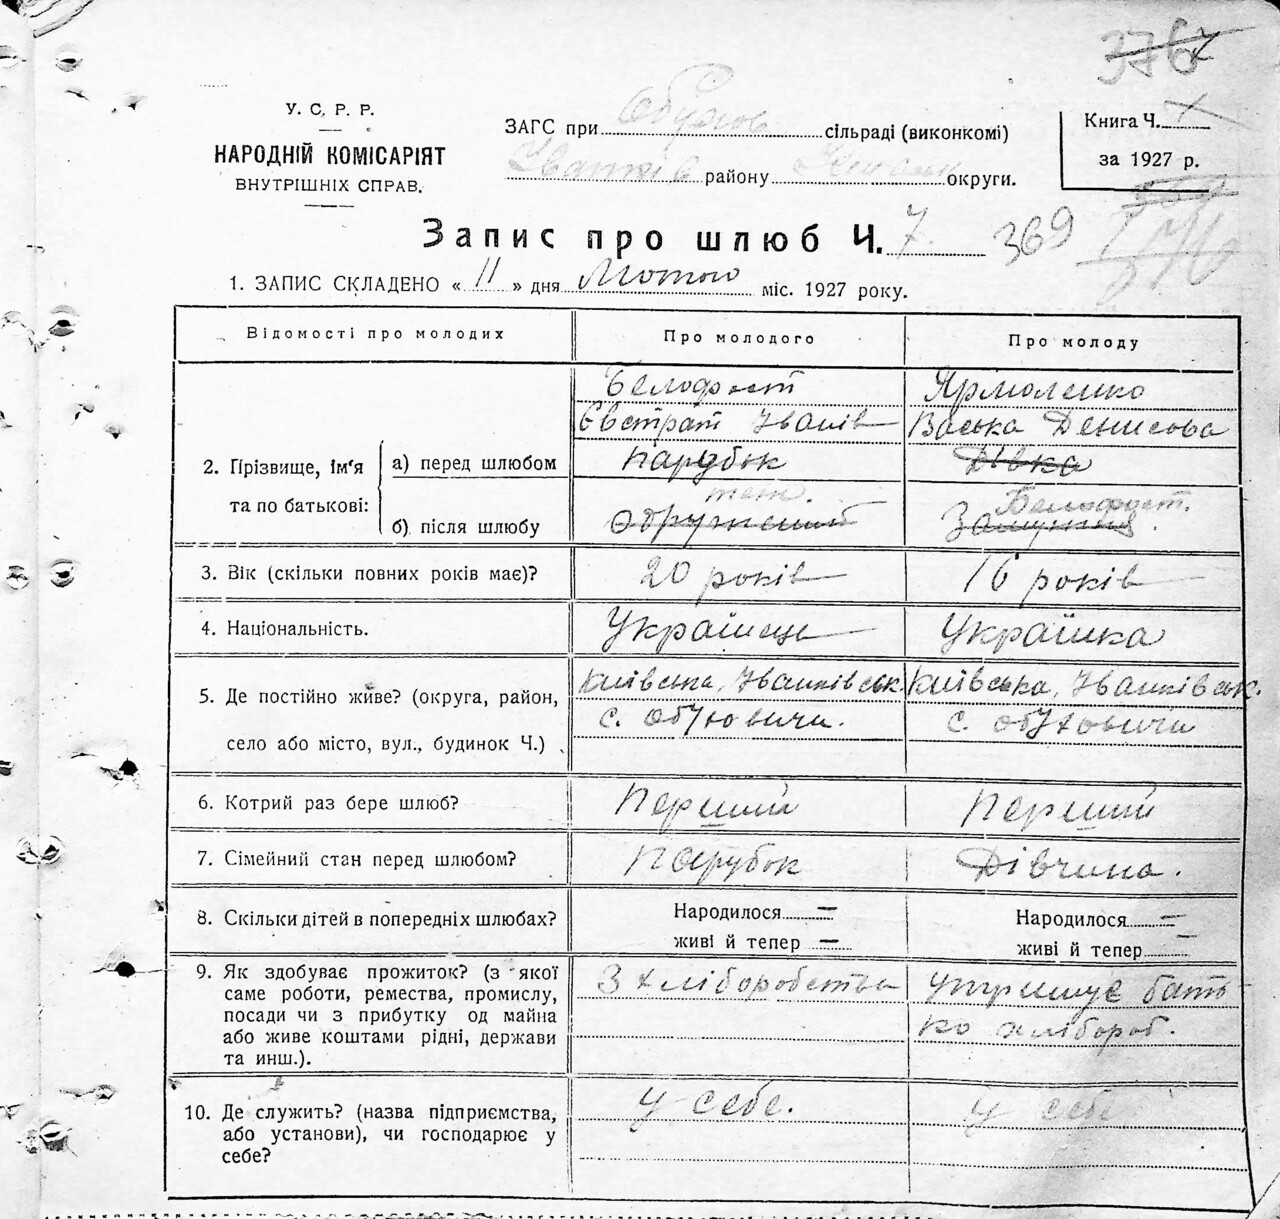 3767
У. С. Р. Р.
НАРОДНІЙ КОМІСАРІЯТ
ВНУТРІШНІХ СПРАВ.
ЗАГС при Обухов сільраді (виконкомі)
Іванків району округи.
Книга Ч.
за 1927 р.
Запис про шлюб Ч. 7. 369
1. ЗАПИС СКЛАДЕНО « 11 » дня Лютого міс. 1927 року.
Відомості про молодих
Про молодого
Про молоду
2. Прізвище, ім'я та по батькові:
а) перед шлюбом
б) після шлюбу
Белофост
Євстрат Іванів
Парубок
теж.
Одружений
Ярмоленко
Васька Денисова
Дівка
Белофост.
Замужня
3. Вік (скільки повних років має)?
20 років
16 років
4. Національність.
Українець
Українка
5. Де постійно живе? (округа, район,
село або місто, вул., будинок Ч.)
Київська, Іванківськ.
с. Обуховичи.
Київська, Іванківськ.
с. Обуховичи
6. Котрий раз бере шлюб?
Перший
Перший
7. Сімейний стан перед шлюбом?
Парубок
Дівчина.
8. Скільки дітей в попередніх шлюбах?
Народилося —
живі й тепер —
Народилося —
живі й тепер —
9. Як здобуває прожиток? (з якої
саме роботи, ремества, промислу,
посади чи з прибутку од майна
або живе коштами рідні, держави
та инш.).
З хліборобства
Утримує бать-
ко хлібороб.
10. Де служить? (назва підприємства,
або установи), чи господарює у
себе?
у себе.
у себе